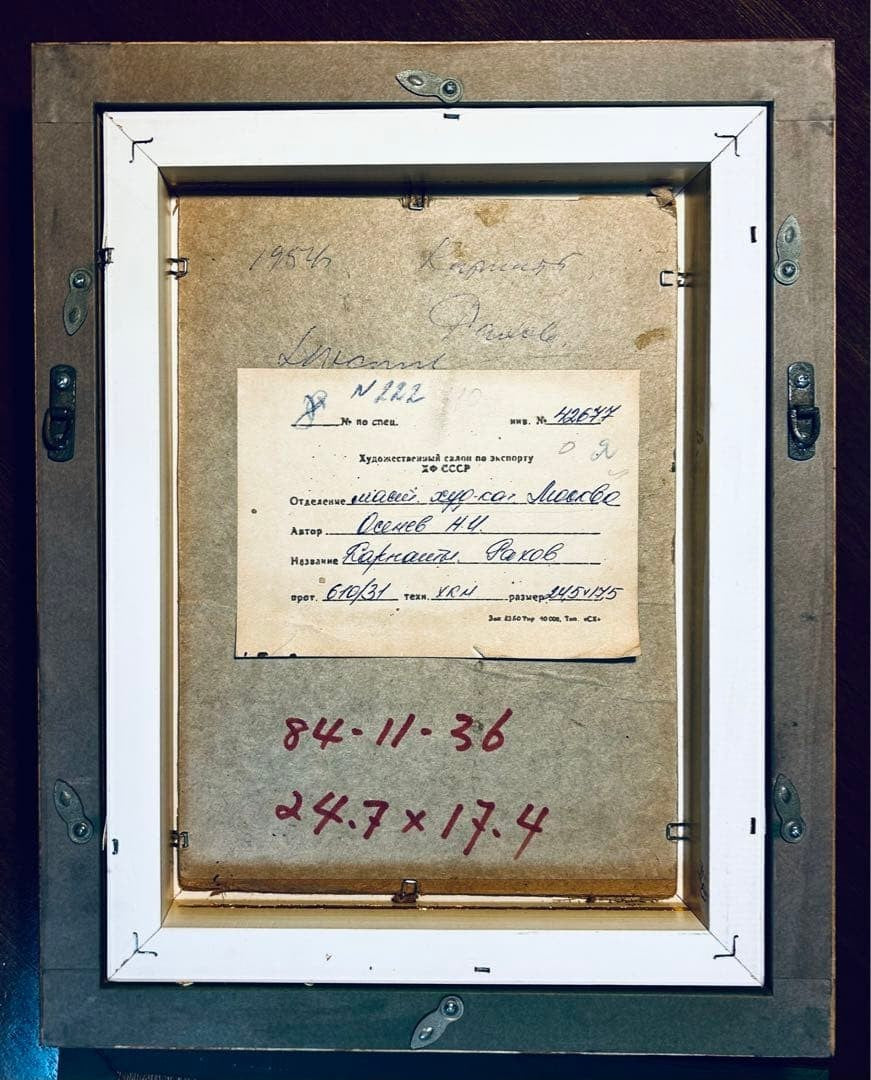 1954г.
Рахов.
N 222
№ по спец. инв. № 42677
Художественный салон по экспорту
ХФ СССР
Отделение худ-ка г Москва
Автор Осенев Н.И.
Название Карпаты. Рахов
прот. 610/31 техн. ХКМ размер 24,5х17,5
Зак 2350 Тир 10 000, Тип. «СХ»
84-11-36
24.7 x 17.4